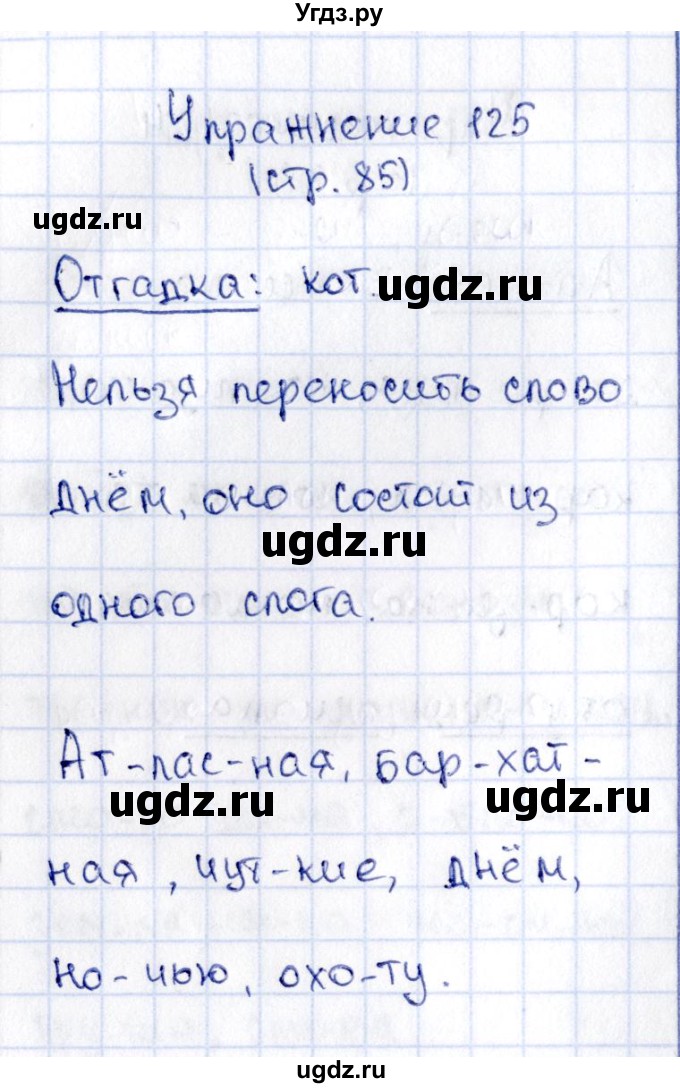 Угдз.ру
Упражнение 125
(стр. 85)
ugdz.ru
Отгадка: кот. ugdz.ru
Нельзя переносить слово
днём, оно состоит из
ugdz.ru
одного слога.
Ат-лас-ная, бар-хат-
ugdz.ru ugdz.ru
ная, чут-кие, днём,
но-чью, охо-ту.
ugdz.ru